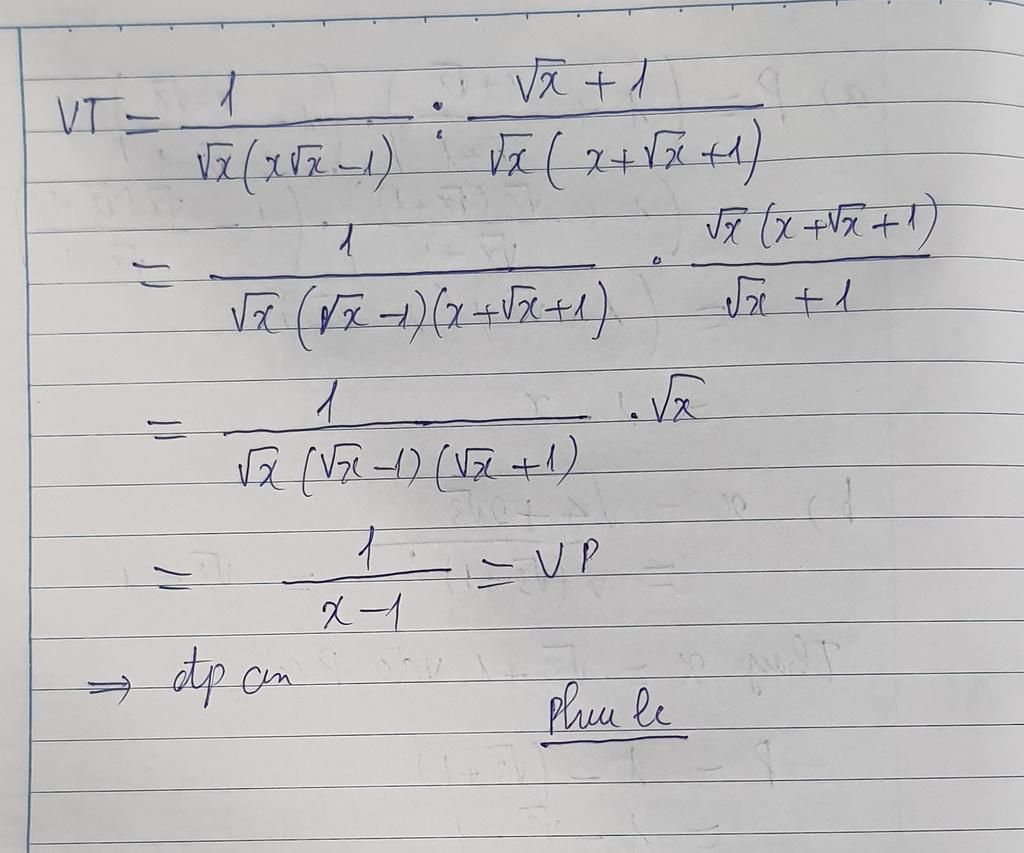 VT = 1 / √x(x√x - 1) : √x + 1 / √x( x + √x + 1)
= 1 / √x(√x - 1)(x + √x + 1) . √x(x + √x + 1) / √x + 1
= 1 / √x(√x - 1)(√x + 1) . √x
= 1 / x - 1 = VP
⇒ đpcm